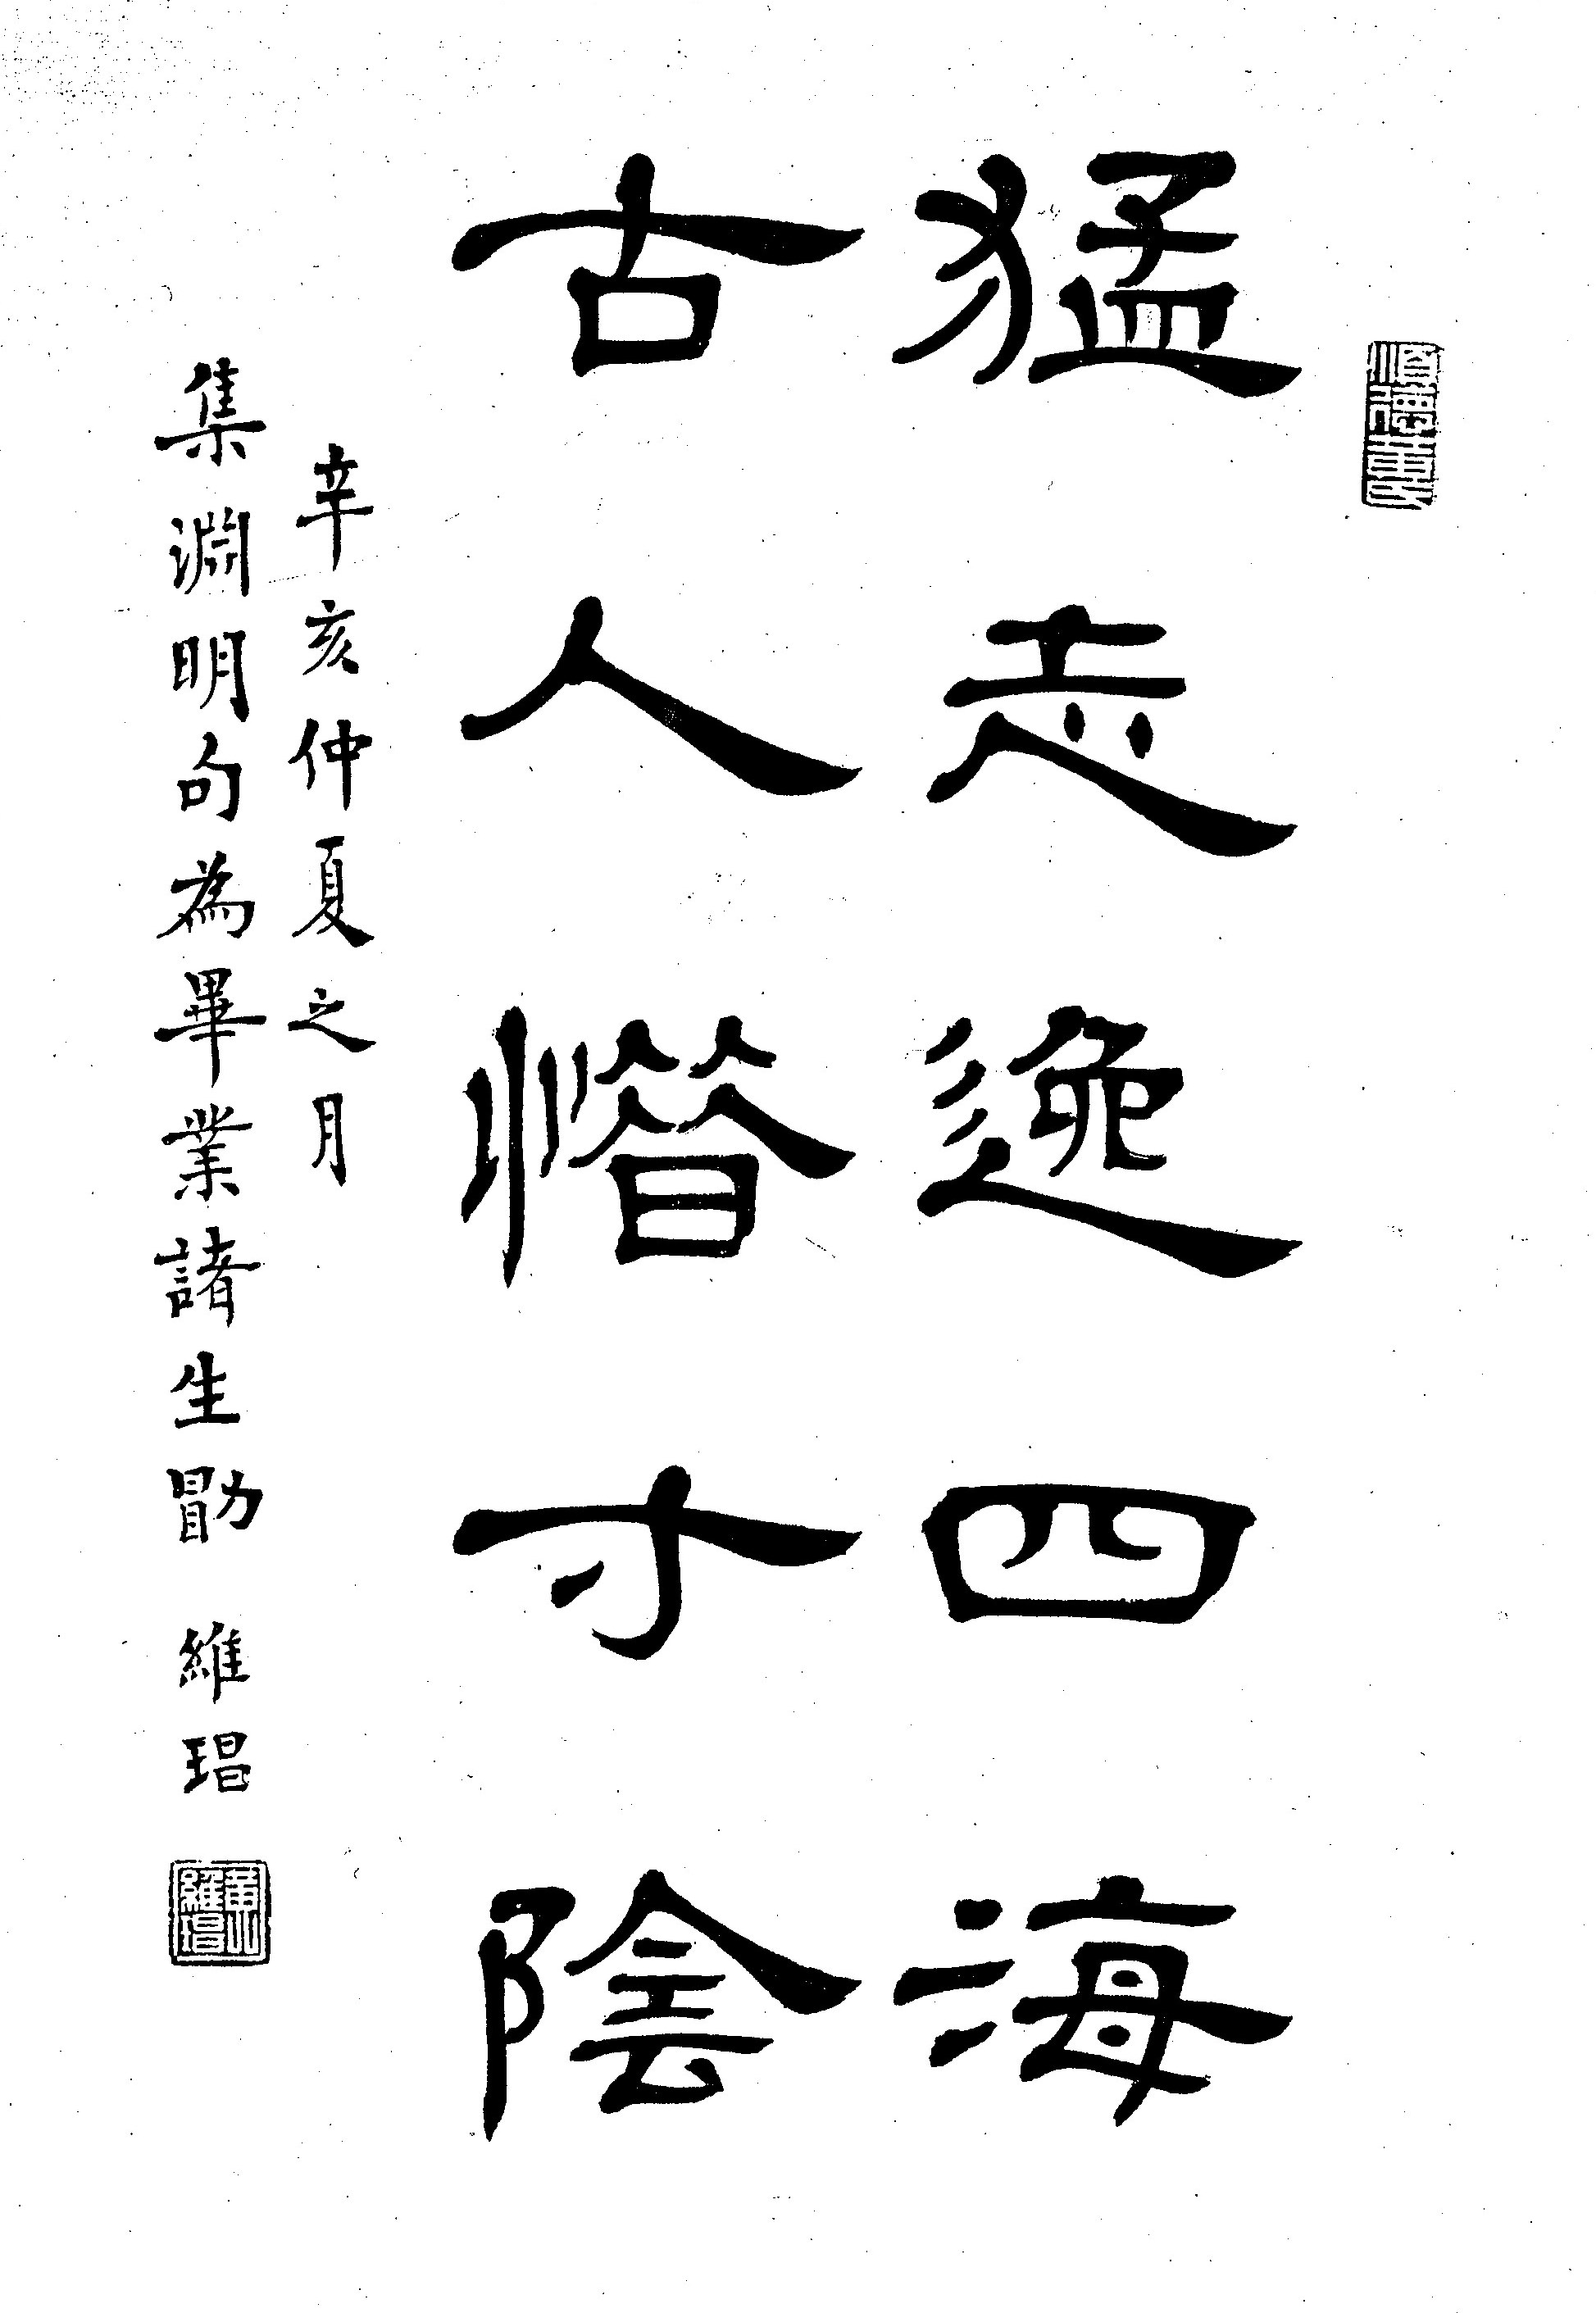 猛志逸四海
古人惜寸陰
辛亥仲夏之月
集淵明句為畢業諸生勖 維琩
順德黃氏
黃維琩